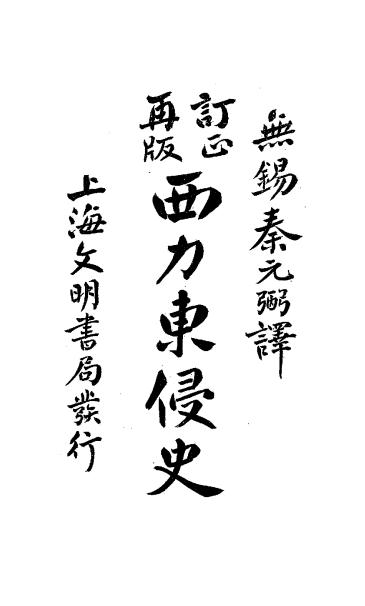 無錫秦元弼譯
訂正
再版
西力東侵史
上海文明書局發行